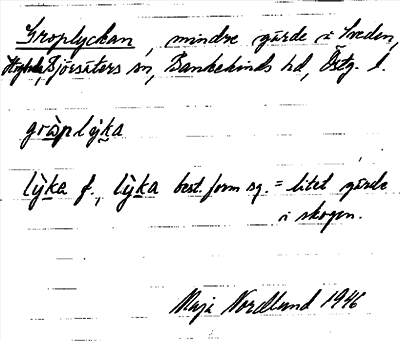 Groplyckan, mindre gärde i Sveden,
Björsäters sn, Bankekinds hd, Östg. l.
gròplỳka
lỳka f., lỳka best. form sg. = litet gärde
i skogen.
Maja Nordlund 1946